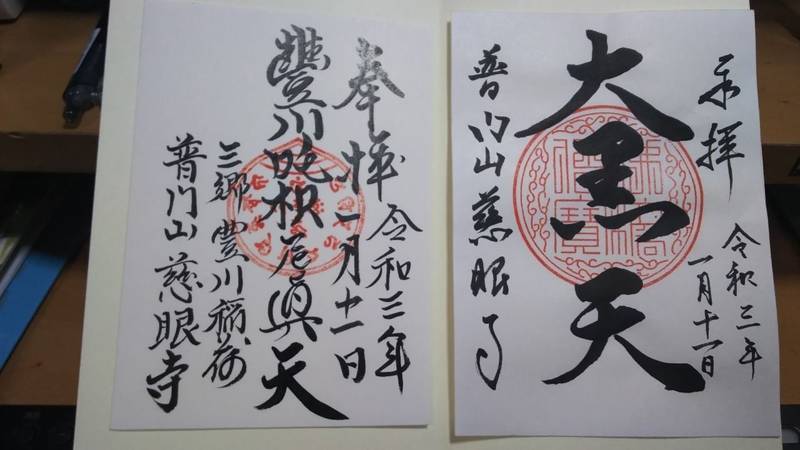 奉拝
令和三年
一月十一日
大黒天
普門山慈眼寺
奉拝
令和三年
一月十一日
豐川吒枳尼眞天
三郷豊川稲荷
普門山慈眼寺